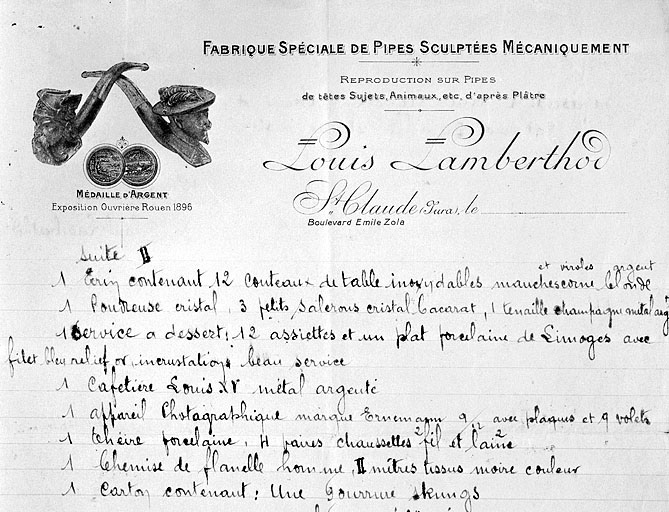 FABRIQUE SPÉCIALE DE PIPES SCULPTÉES MÉCANIQUEMENT
REPRODUCTION SUR PIPES
de têtes Sujets, Animaux, etc, d'après Plâtre
Louis Lamberthod
St Claude (Jura), le
Boulevard Emile Zola
MÉDAILLE D'ARGENT
Exposition Ouvrière Rouen 1896
Suite II
et viroles argent
1 Ecrin contenant 12 couteaux de table inoxydables manches corne blonde
1 Poudreuse cristal, 3 petits salerons cristal bacarat, 1 tenaille champagne metal arg
1 Service a dessert: 12 assiettes et un plat porcelaine de Limoges avec
filet bleu relief or, incrustations beau service
1 Cafetière Louis XV métal argenté
1 appareil Photographique marque Ernemann 9/12 avec plaques et 9 volets
1 theière porcelaine, 4 paires chaussettes 2 fil et 2 laine
1 Chemise de flanelle homme, II mêtres tissus moire couleur
1 Carton contenant: Une skungs